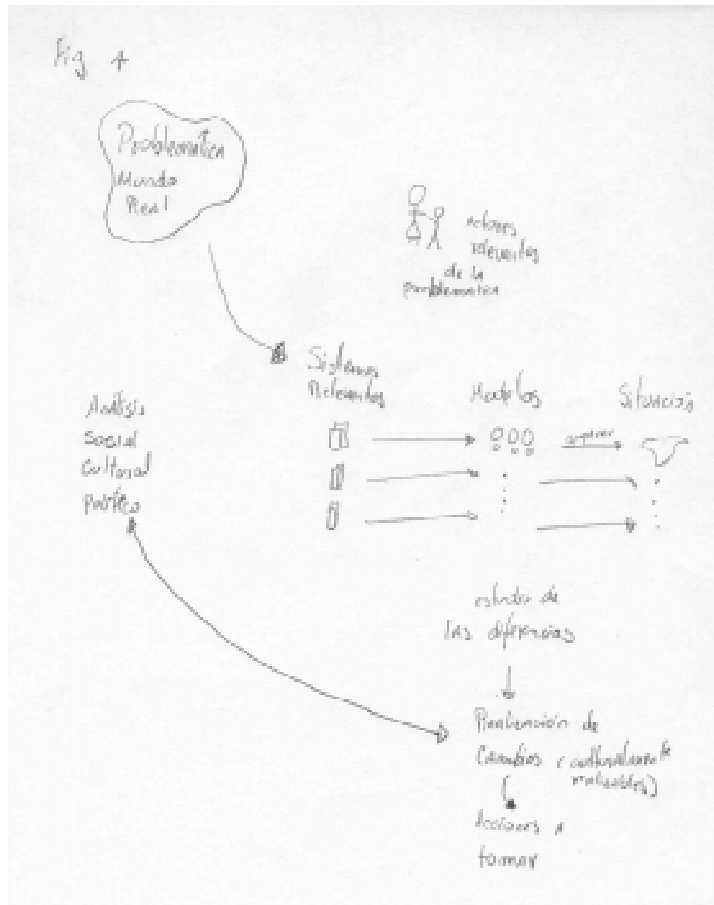 Fig 4
Problemática
Mundo
Real
actores
relevantes
de la
problematica
Sistemas
Relevantes
Modelos
Situación
Análisis
Social
Cultural
Político
comparar
estudio de
las diferencias
Realización de
Cambios (culturalmente
realizables)
acciones a
tomar